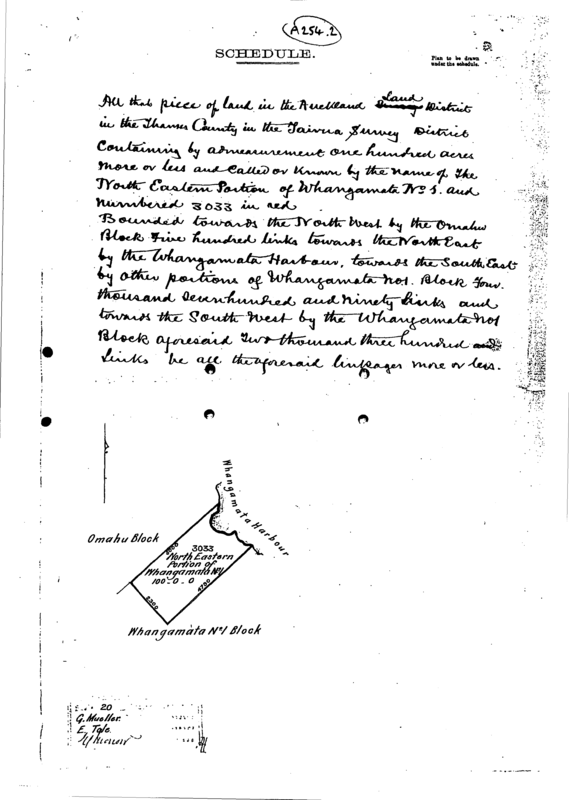 A254.2
SCHEDULE.
Plan to be drawn
under the schedule.
All that piece of land in the Auckland Land District
in the Thames County in the Tairua Survey District
Containing by admeasurement one hundred acres
more or less and Called or Known by the name of The
North Eastern Portion of Whangamata No 1. and
numbered 3033 in red
Bounded towards the North West by the Omahu
Block Five hundred links towards the North East
by the Whangamata Harbour, towards the South East
by other portions of Whangamata No1. Block Four
thousand Seven hundred and Ninety Links and
towards the South West by the Whangamata No1
Block aforesaid Two thousand three hundred
Links be all the aforesaid linkages more or less.
Whangamata Harbour
Omahu Block
3033
North Eastern
Portion of
Whangamata No1
100. 0. 0
2300
4790
Whangamata No1 Block
20
G. Mueller.
E. Tole.